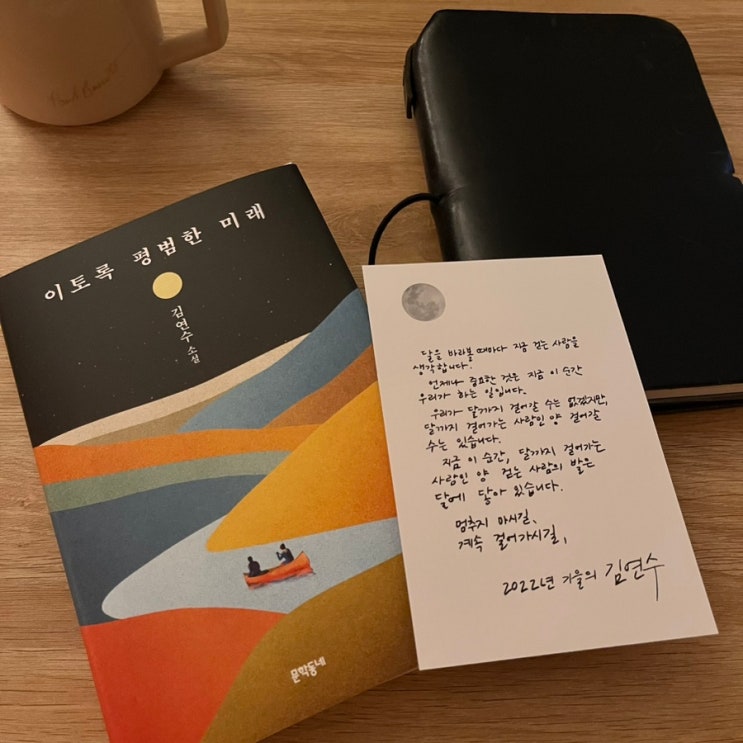 Paul Bassett
이토록 평범한 미래
김연수 소설
문학동네
달을 바라볼 때마다 지금 걷는 사람을
생각합니다.
언제나 중요한 것은 지금 이 순간
우리가 하는 일입니다.
우리가 달까지 걸어갈 수는 없겠지만,
달까지 걸어가는 사람인 양 걸어갈
수는 있습니다.
지금 이 순간, 달까지 걸어가는
사람인 양 걷는 사람의 발은
달에 닿아 있습니다.
멈추지 마시길,
계속 걸어가시길,
2022년 가을의 김연수